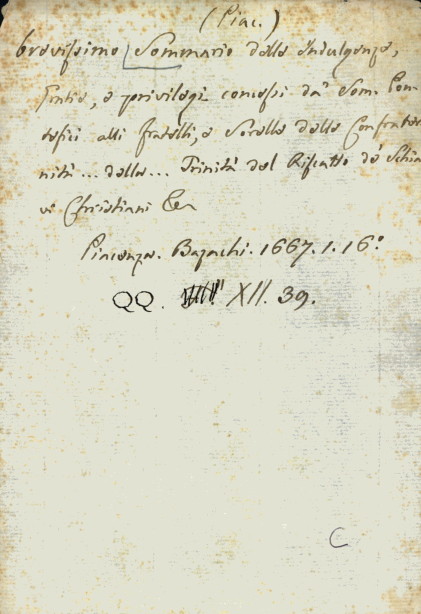 (Piac.)
brevissimo Sommario delle Indulgenze,
Gratie, e privilegi concessi da Som. Pon-
tefici alli fratelli, e Sorelle della Confrater
nità ... della ... Trinità del Riscatto de Schia
vi Christiani &c
Piacenza. Bazachi. 1667. 1. 16°
QQ. XII. 39.
C